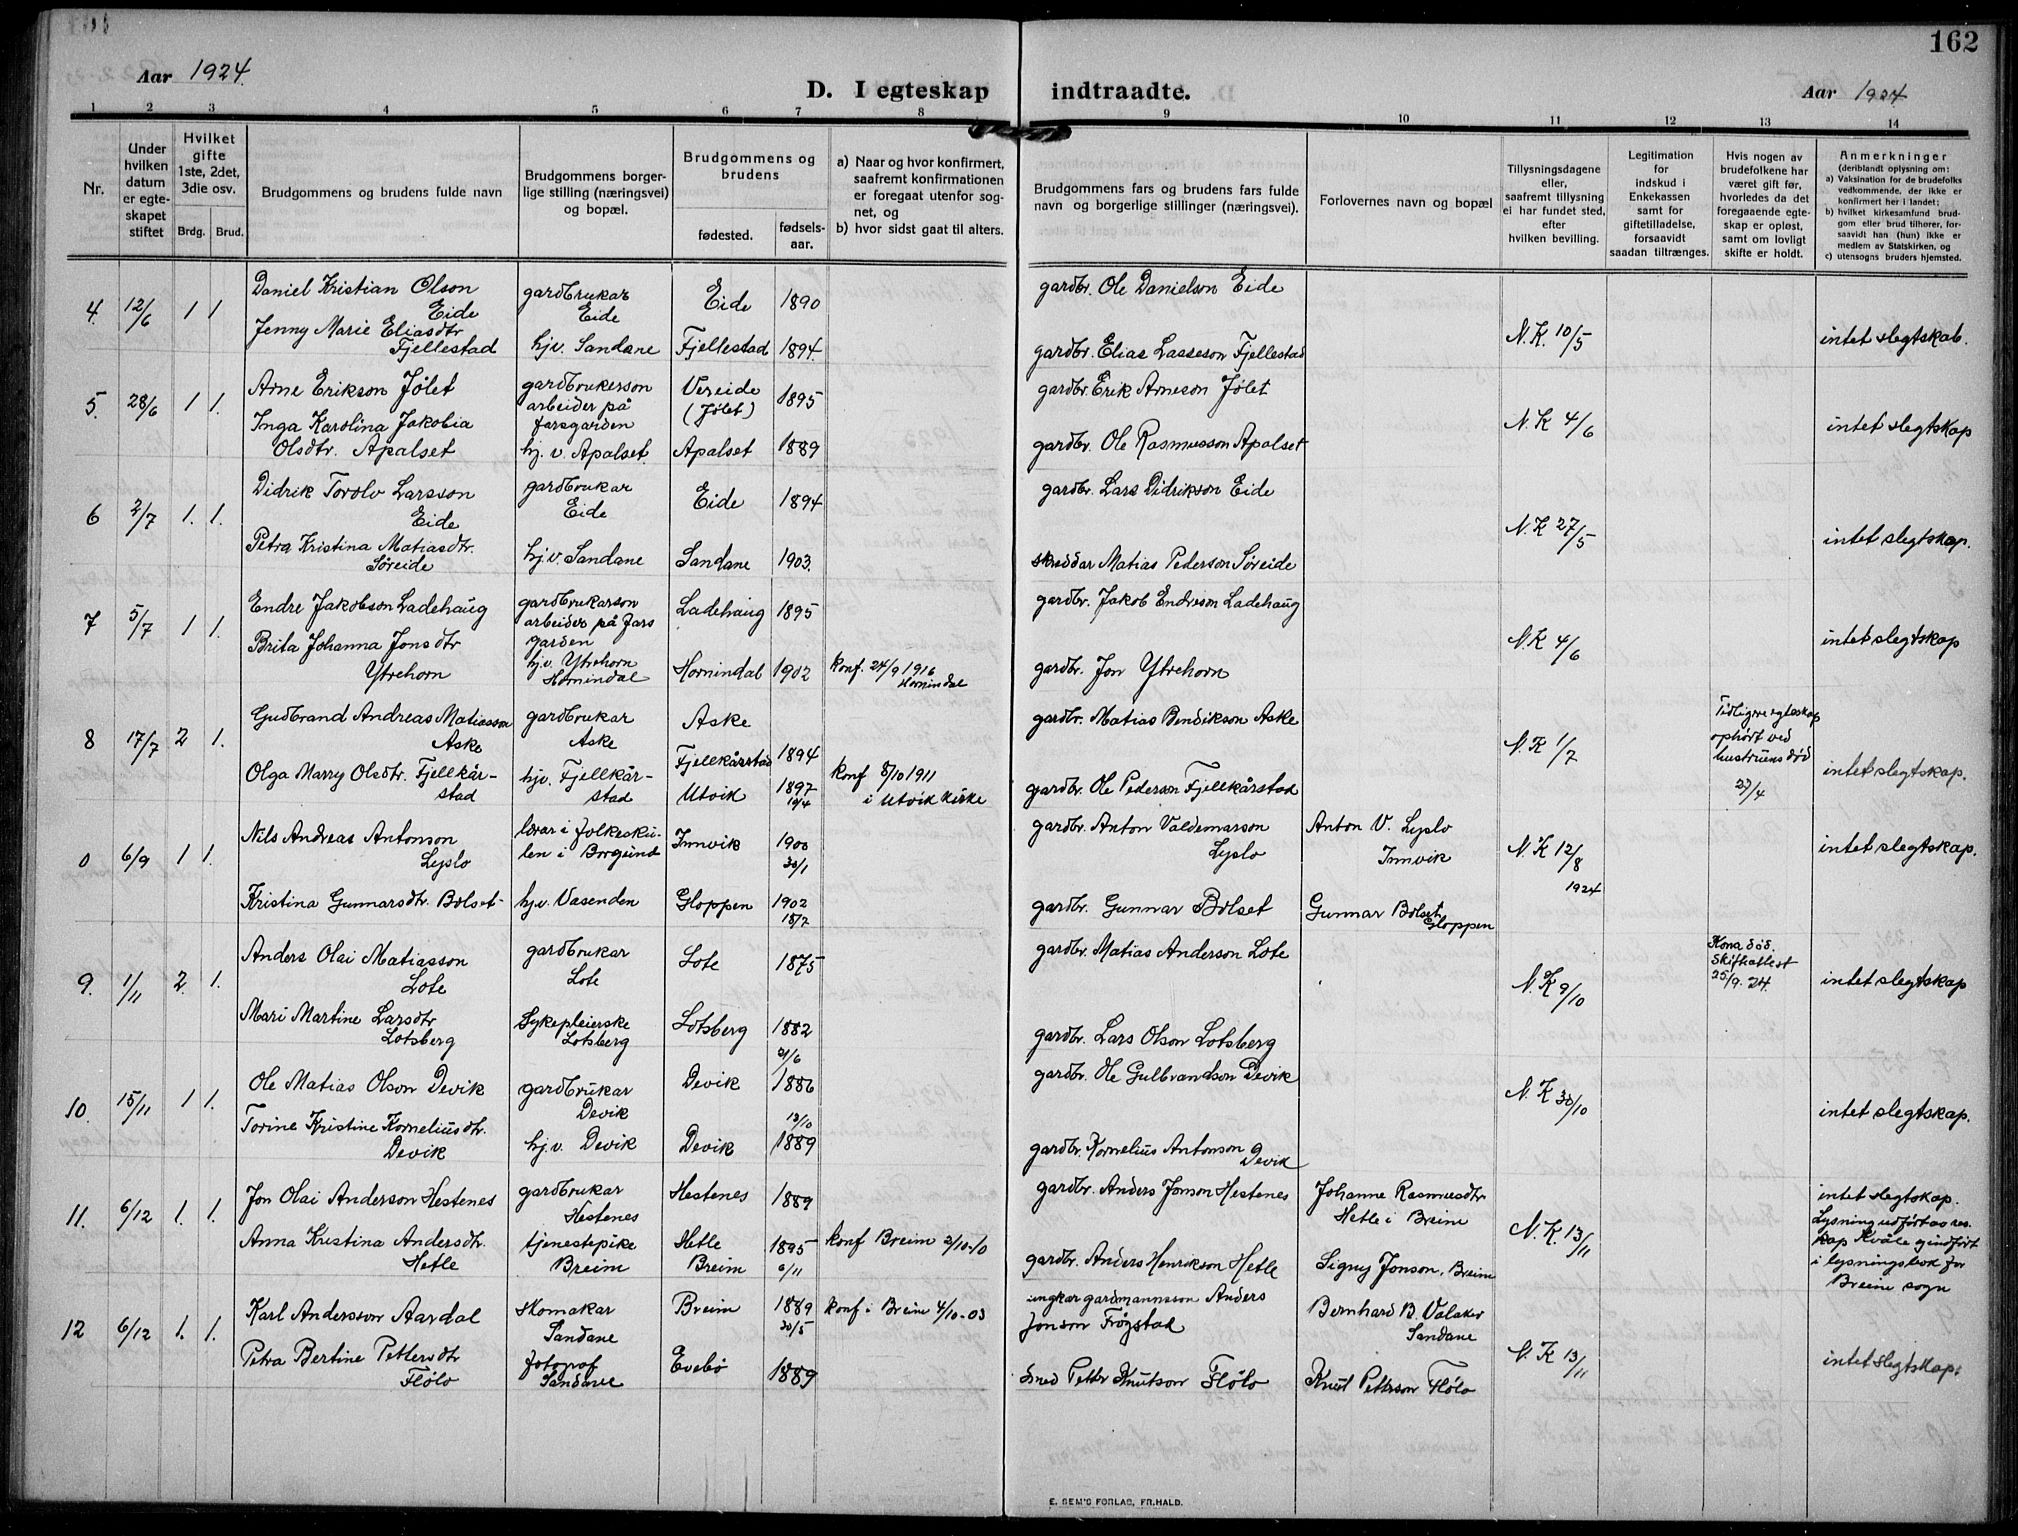 162
Aar 1924.
D. I egteskap indtraadte.
Aar 1924.
1 2 3 4 5 6 7 8 9 10 11 12 13 14
Nr.
Under hvilken datum er egteskapet stiftet
Hvilket gifte 1ste, 2det, 3die osv.
Brdg. Brud.
Brudgommens og brudens fulde navn
Brudgommens borgerlige stilling (næringsvei) og bopæl.
Brudgommens og brudens
fødested.
fødselsaar.
a) Naar og hvor konfirmert, saafremt konfirmationen er foregaat utenfor sognet, og
b) hvor sidst gaat til alters.
Brudgommens fars og brudens fars fulde navn og borgerlige stillinger (næringsvei).
Forlovernes navn og bopæl
Tillysningsdagene eller, saafremt tillysning ei har fundet sted, efter hvilken bevilling.
Legitimation for indskud i Enkekassen samt for giftetilladelse, forsaavidt saadan tiltrænges.
Hvis nogen av brudefolkene har været gift før, hvorledes da det foregaaende egteskap er opløst, samt om lovligt skifte er holdt.
Anmerkninger
(deriblandt oplysning om:
a) Vaksination for de brudefolks vedkommende, der ikke er konfirmert her i landet;
b) hvilket kirkesamfund brudgom eller brud tilhører, forsaavidt han (hun) ikke er medlem av Statskirken, og
c) utensogns bruders hjemsted.
4. 12/6 1 1 Daniel Kristian Olson Eide gardbrukar Eide Eide 1890 gardbr. Ole Danielson Eide
Jenny Marie Eliasdtr Fjellestad hj.v. Sandane Fjellestad 1894. gardbr. Elias Lasseson Fjellestad N.K. 10/5 intet slegtskab.
5. 28/6 1 1. Arne Erikson Jølet gardbrukerson arbeider på farsgarden Vereide (Jølet) 1895 gardbr. Erik Arneson Jølet
Inga Karolina Jakobia Olsdtr. Apalset hj. v. Apalset. Apalset 1889 gardbr. Ole Rasmusson Apalset N.K 4/6 intet slegtskap
6 2/7 1. 1. Didrik Torolv Larsson Eide gardbrukar Eide Eide 1894 gardbr. Lars Didrikson Eide
Petra Kristina Matiasdtr. Søreide hj.v. Sandane Sandane 1903. skreddar Matias Pederson Søreide N.K 27/5 intet slegtskap.
7 5/7 1 1. Endre Jakobson Ladehaug gardbrukarson arbeider på fars garden Ladehaug 1895 gardbr. Jakob Endreson Ladehaug
Brita Johanna Jonsdtr Ytrehorn hj.v. Ytrehorn Hornindal Hornindal 1902 konf. 24/9 1916 Hornindal gardbr. Jon Ytrehorn N.K 4/6 intet slegtskap
8 17/7 2 1. Gudbrand Andreas Matiasson Aske gardbrukar Aske Aske Fjellkårstad 1894 gardbr. Matias Bendikson Aske
Olga Marry Olsdtr. Fjellkårstad hjv. Fjellkårstad Utvik 1897 10/4 konf 8/10 1911 i Utvik kirke gardbr. Ole Pederson Fjellkårstad N.K 1/7 Tidligere egteskap ophørt ved hustruens død 27/4 intet slegtskap.
0 6/9 1 1. Nils Andreas Antonson Lyslo lærar i folkeskulen i Borgund Innvik 1900 30/1 gardbr. Anton Valdemarson Lyslo Anton V. Lyslo Innvik N.K 12/8 1924 intet slegtskap.
Kristina Gunnarsdtr. Bolset hj.v. Vasenden Gloppen 1902 18/7 gardbr. Gunnar Bolset Gunnar Bolset Gloppen
9. 1/11 2. 1. Anders Olai Matiasson Lote gardbrukar Lote Lote 1875 gardbr. Matias Anderson Lote N.K 9/10 Kona död. Skiftattest 25/9. 24. intet slegtskap
Mari Martine Larsdtr Lotsberg Sykepleierske Lotsberg Lotsberg 1882 gardbr. Lars Olson Lotsberg
10. 15/11 1 1. Ole Matias Olson Devik gardbrukar Devik Devik 21/6 1886 gardbr. Ole Gulbrandson Devik N.K 30/10
Torine Kristine Korneliusdtr. Devik hj.v. Devik Devik 12/10 1889 gardbr. Kornelius Antonson Devik intet slegtskap.
11. 6/12 1. 1. Jon Olai Anderson Hestenes gardbrukar Hestenes Hestenes 1889 gardbr. Anders Jonson Hestenes Johanne Rasmusdtr Hetle i Breim N.K 13/11 intet slegtskap. Lysning utført av res. kap Kvåle og indført i lysningsbok for Breim sogn
Anna Kristina Andersdtr. Hetle tjenestepike Breim Hetle Breim 1895 6/11 konf Breim 2/10-10 gardbr. Anders Henrikson Hetle Signy Jonson, Breim
12 6/12 1. 1. Karl Andersson Aardal skomakar Sandane Breim 1889 30/5 konf i Breim 4/10-03 ungkar gardmannsson Anders Jonson Frøystad Bernhard B. Valaker Sandane N.K 13/11 intet slegtskap.
Petra Bertine Pettersdtr Flølo fotograf Sandane Evebø 1889 smed Petter Knutson Flølo Knut Petterson Flølo
E. SEM'S FORLAG, FR.HALD.